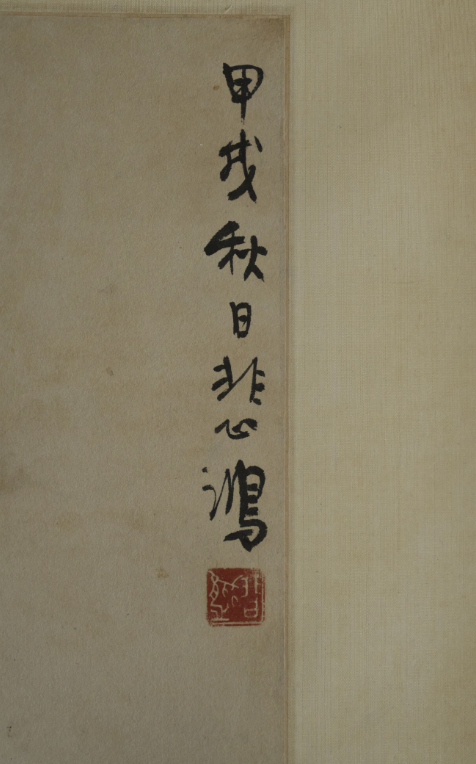 甲戌秋日悲鴻